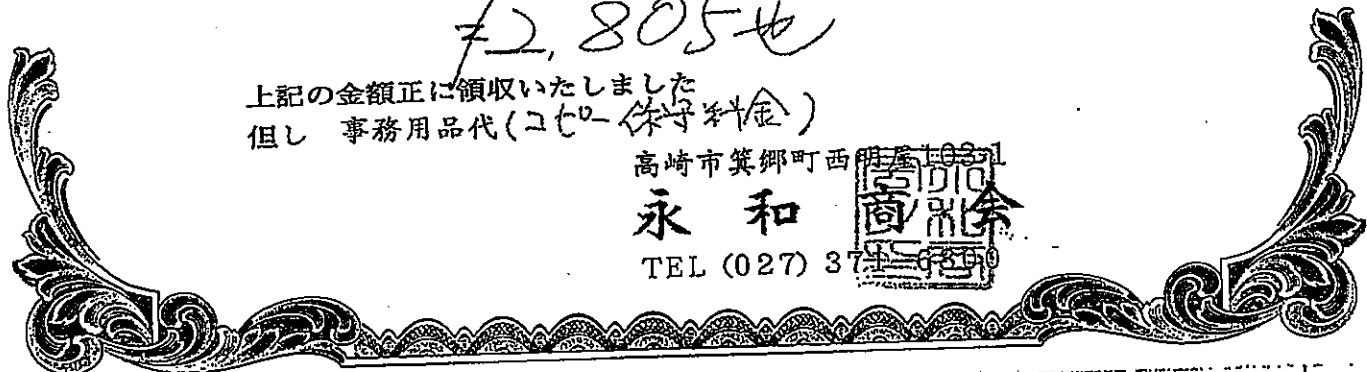 ¥2,805也
上記の金額正に領収いたしました
但し 事務用品代(コピー保守料金)
高崎市箕郷町西明屋103-1
永和商会
TEL (027) 371-6800